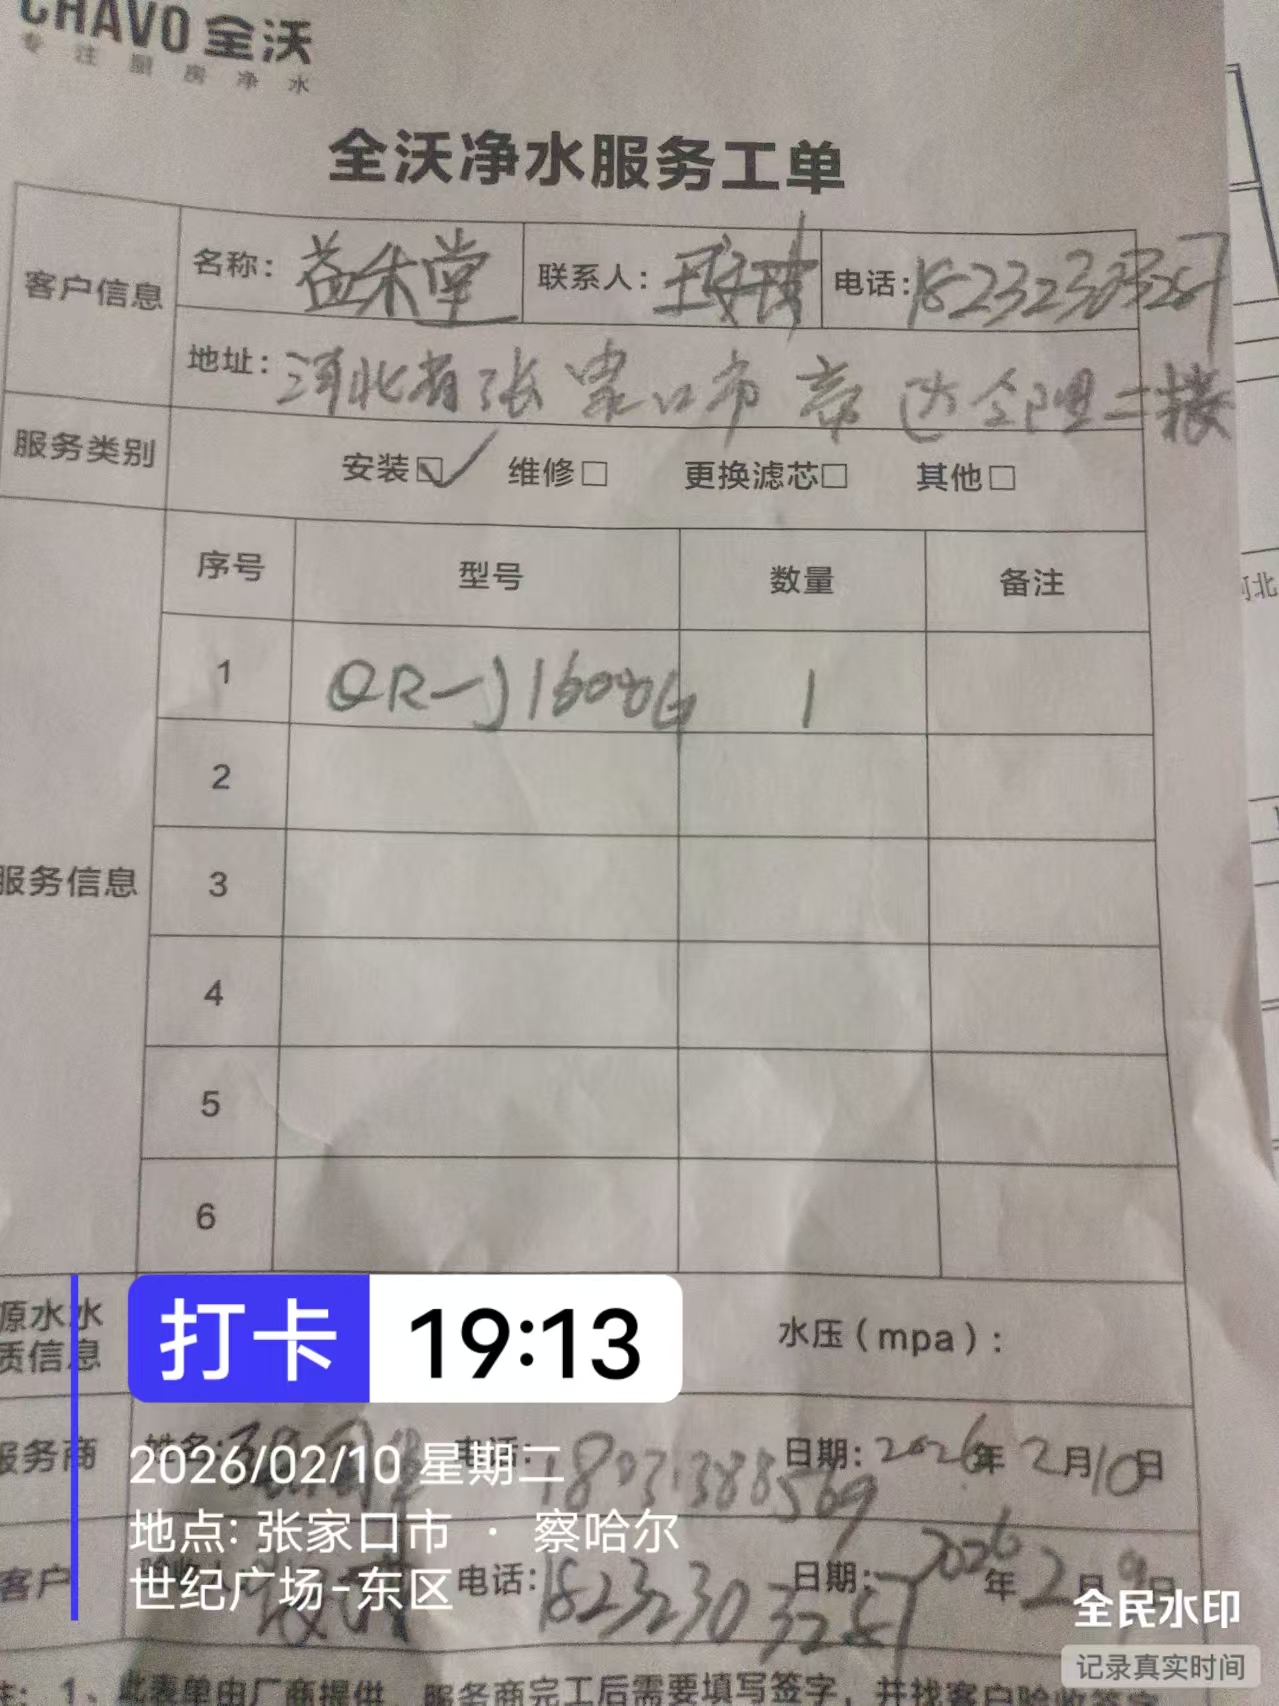 CHAVO 全沃
专注厨房净水
全沃净水服务工单
客户信息
名称：益禾堂 联系人： 电话：
地址：河北省张家口市 京达合理二楼
服务类别
安装☑ 维修□ 更换滤芯□ 其他□
服务信息
序号 型号 数量 备注
1 QR-J1600G 1
2
3
4
5
6
源水水质信息
水压（mpa）：
打卡 19:13
服务商 姓名： 电话：18031388569 日期：2026年2月10日
2026/02/10 星期二
地点: 张家口市 · 察哈尔
世纪广场-东区
客户 电话： 日期：2026年2月9日
全民水印
记录真实时间
注：1、此表单由厂商提供，服务商完工后需要填写签字，并找客户验收